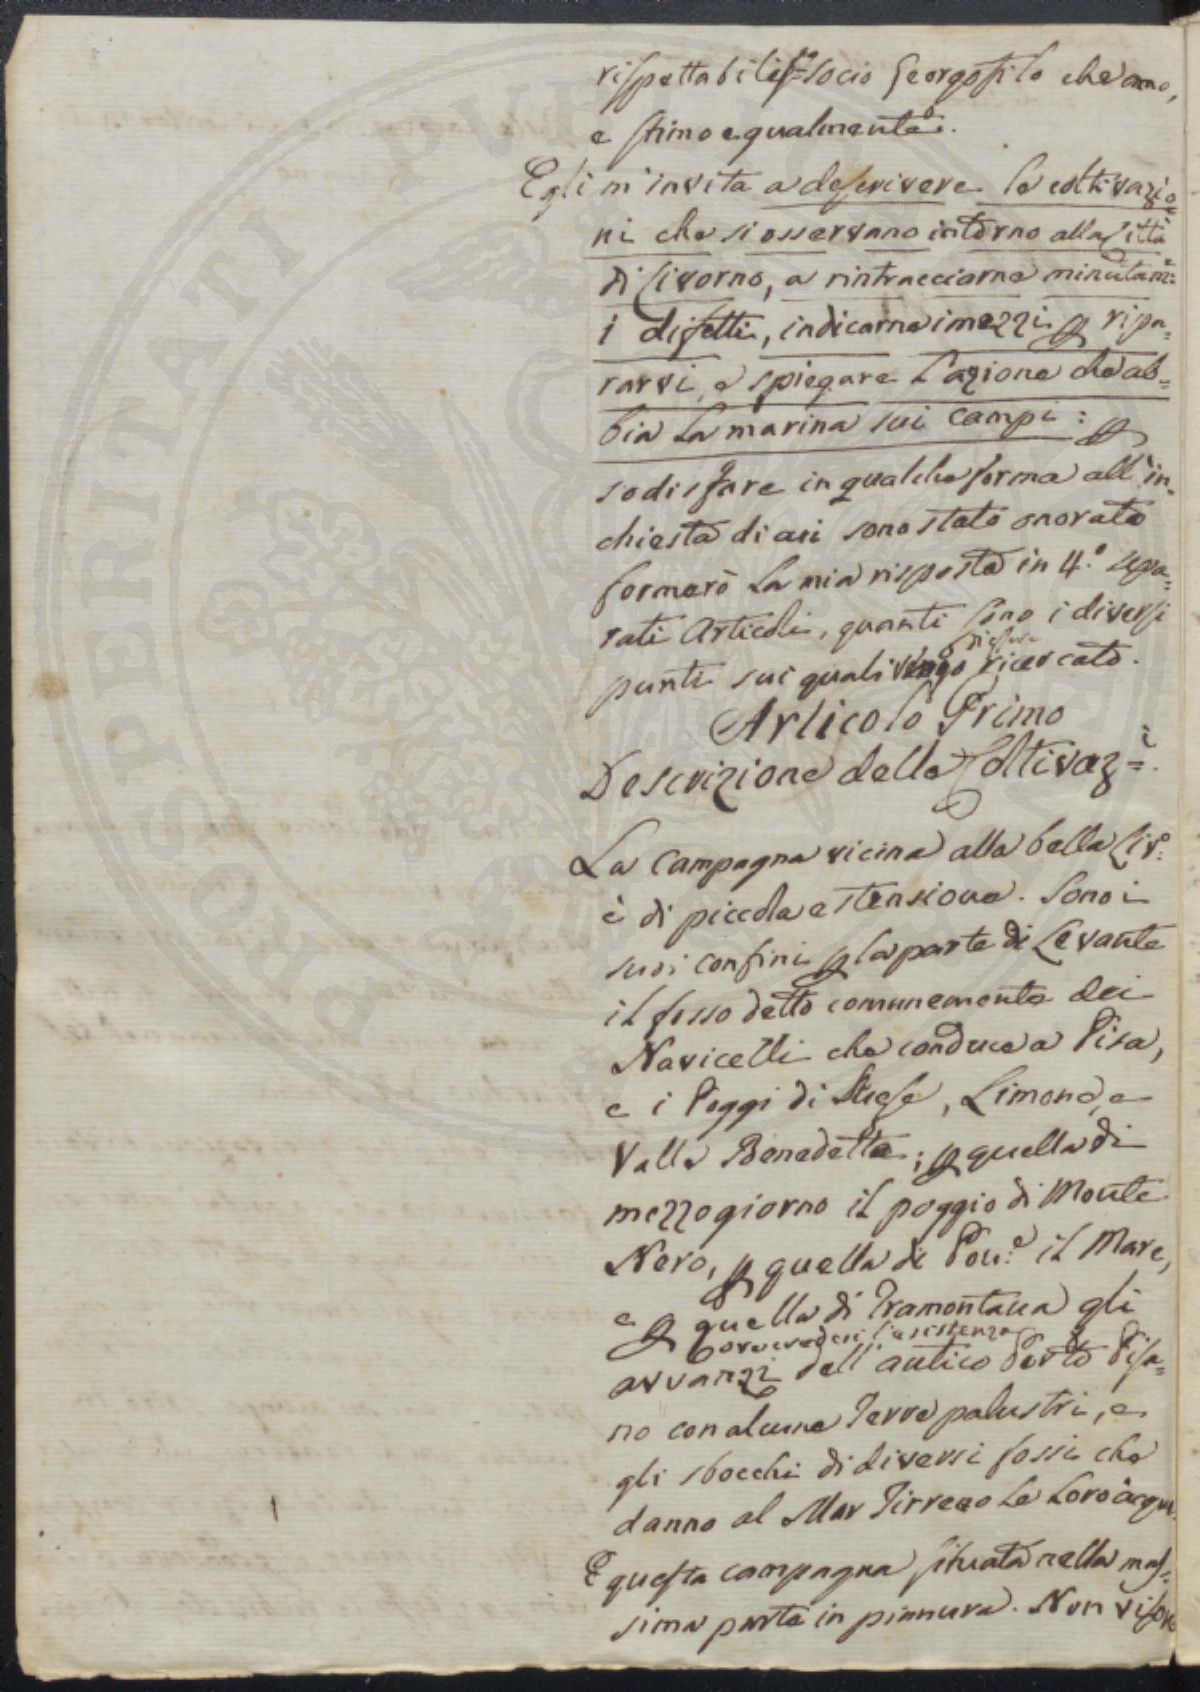 rispettabiliss.º socio Georgofilo che amo,
e stimo egualmente.
Egli m'invita a descrivere le coltivazio
ni che si osservano intorno alla Città
di Livorno, a rintracciarne minutam.e
i difetti, indicarne i mezzi p ripa=
rarvi, e spiegare l'azione che ab=
bia la marina sui campi: p
sodisfare in qualche forma all'in=
chiesta di cui sono stato onorato
formerò la mia risposta in 4.º sepa=
rati Articoli, quanti sono i diversi
punti sui quali vengo ricercato.
Articolo Primo
Descrizione delle Coltivaz=i.
La campagna vicina alla bella Liv.º
è di piccola estensione. Sono i
suoi confini p la parte di Levante
il fosso detto comunemente dei
Navicelli che conduce a Pisa,
e i Poggi di Limone, e
Valle Benedetta; p quella di
mezzogiorno il poggio di Monte
Nero, p quella di Pon.e il Mare,
e p quella di Tramontana gli
ove credesi l'esistenza
avvanzi dell'antico Porto Pisa=
no con alcune Terre palustri, e
gli sbocchi di diversi fossi che
danno al Mar Tirreno le loro acque.
E questa campagna situata nella mas=
sima parte in pianura. Non vi sono
PROSPERITATI PUBLICAE